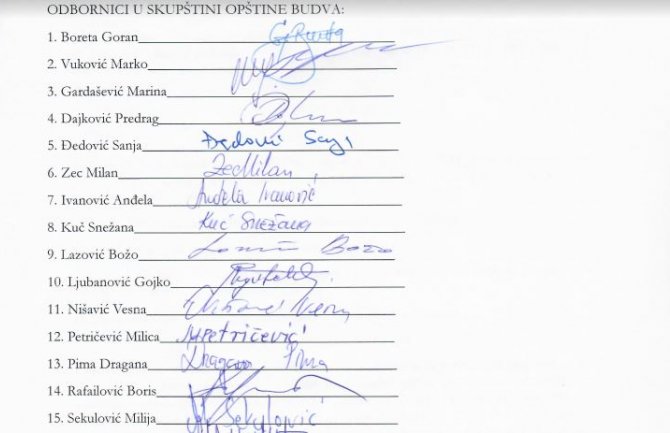 ODBORNICI U SKUPŠTINI OPŠTINE BUDVA:
1. Boreta Goran
2. Vuković Marko
3. Gardašević Marina
4. Dajković Predrag
5. Đedović Sanja Đedović
6. Zec Milan Zec Milan
7. Ivanović Anđela Anđela Ivanović
8. Kuč Snežana Kuč Snežana
9. Lazović Božo Božo
10. Ljubanović Gojko
11. Nišavić Vesna
12. Petričević Milica MPetričević
13. Pima Dragana Dragana Pima
14. Rafailović Boris
15. Sekulović Milija Sekulović